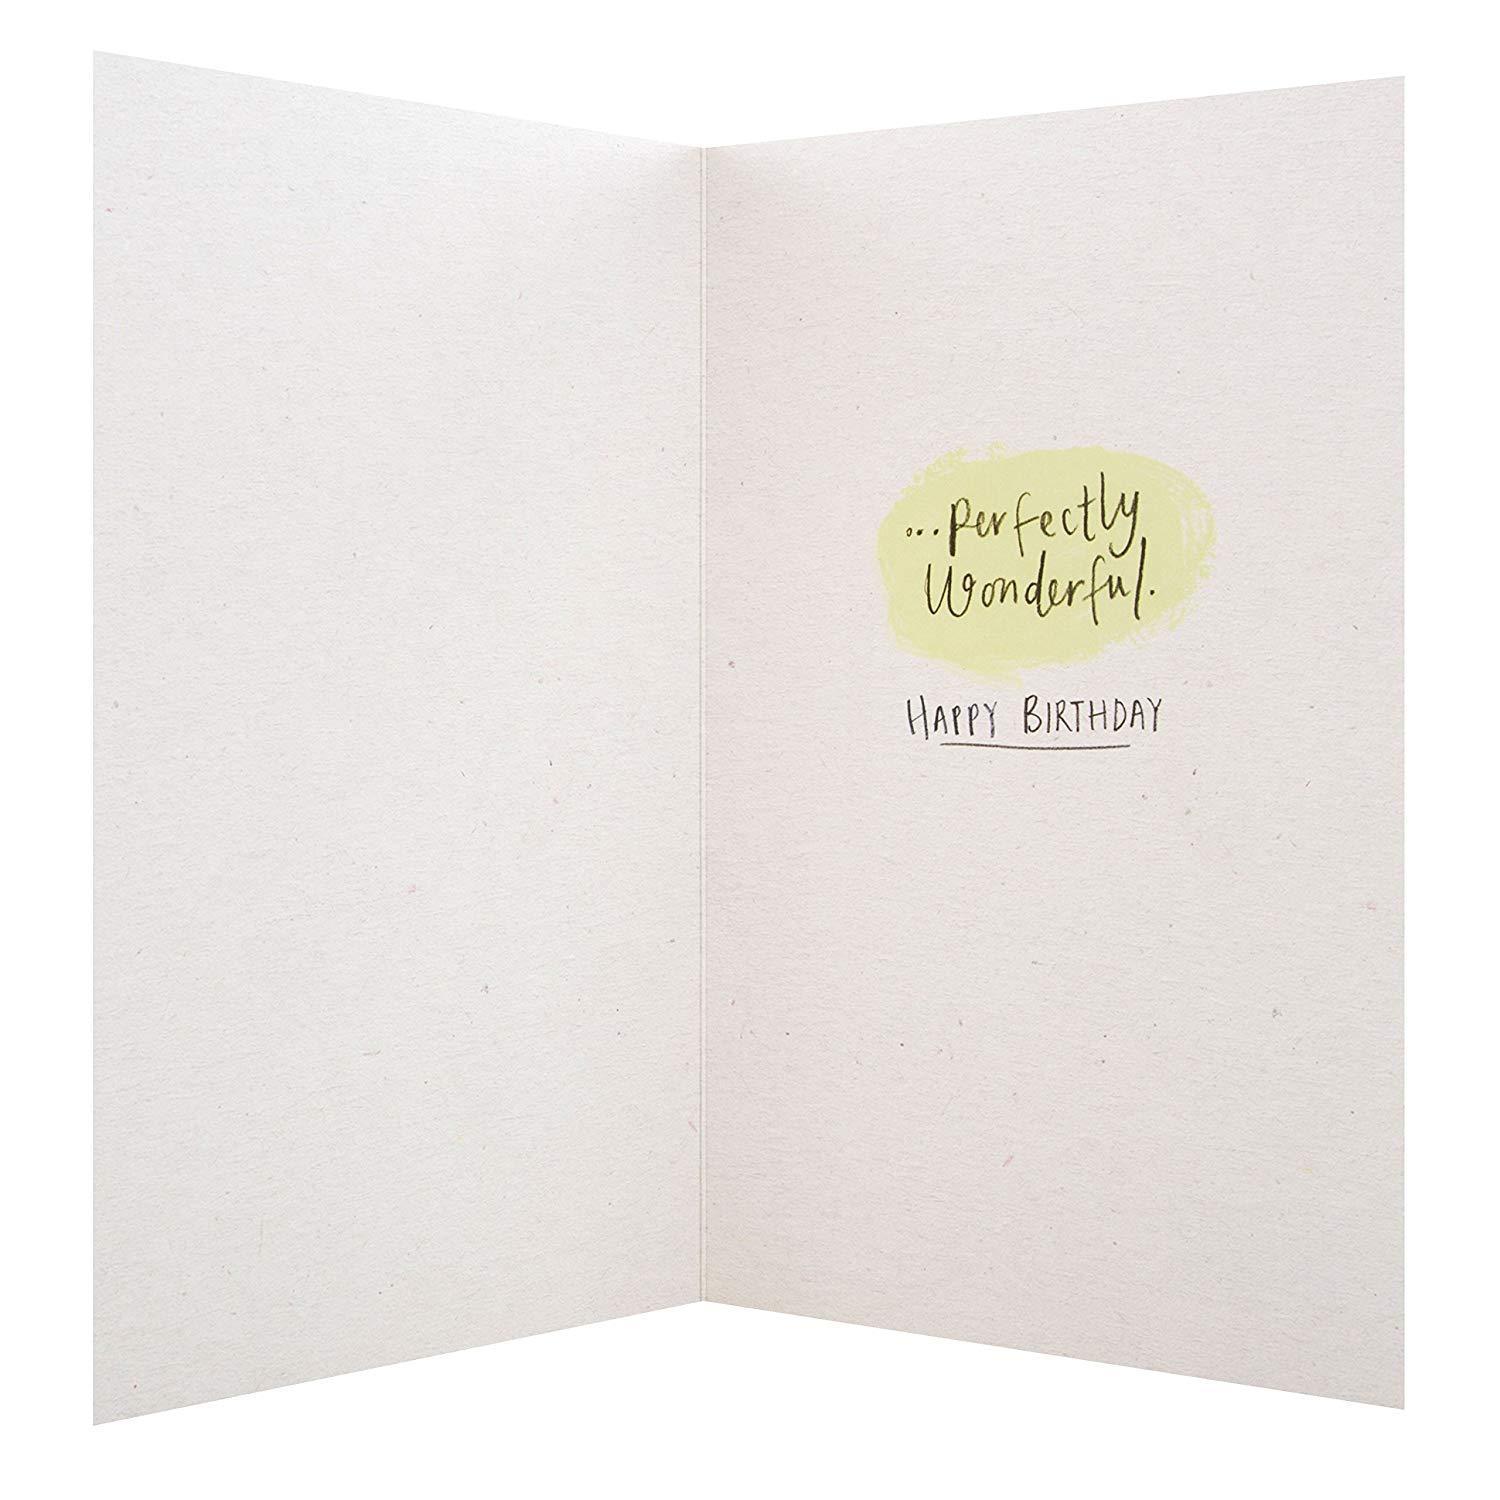 ...perfectly
Wonderful.
HAPPY BIRTHDAY